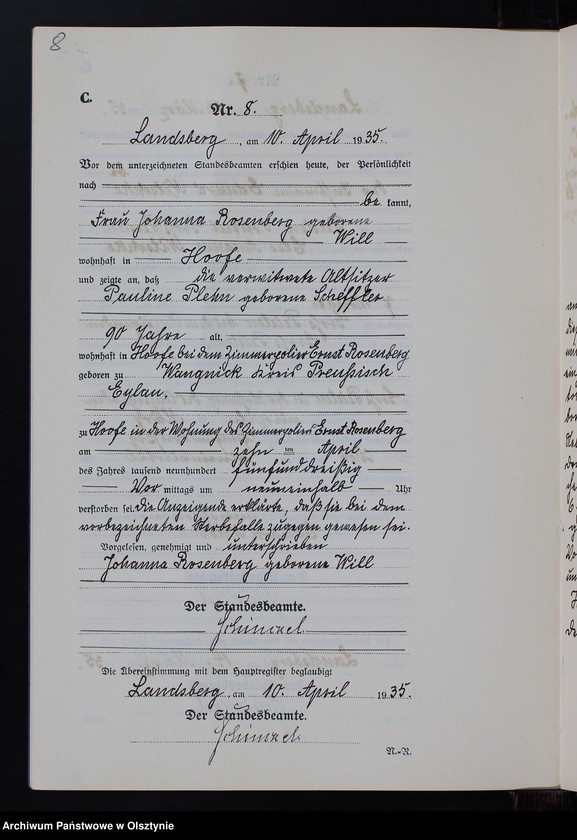 8
C.
Nr. 8.
Landsberg, am 10. April 1935.
Vor dem unterzeichneten Standesbeamten erschien heute, der Persönlichkeit
nach
be kannt,
Frau Johanna Rosenberg geborene
Will
wohnhaft in Hoofe
und zeigte an, daß die verwitwete Altsitzer
Pauline Plehn geborene Scheffler
90 Jahre alt,
wohnhaft in Hoofe bei dem Zimmerpolier Ernst Rosenberg
geboren zu Wangnick Kreis Preußisch
Eylau,
zu Hoofe in der Wohnung des Zimmerpoliers Ernst Rosenberg
am zehn ten April
des Jahres tausend neunhundert fünfunddreißig
Vor mittags um neuneinhalb Uhr
verstorben sei. Die Anzeigende erklärte, daß sie bei dem
vorbezeichneten Sterbefalle zugegen gewesen sei.
Vorgelesen, genehmigt und unterschrieben
Johanna Rosenberg geborene Will
Der Standesbeamte.
Die Übereinstimmung mit dem Hauptregister beglaubigt
Landsberg, am 10. April 1935.
Der Standesbeamte.
N.-R.
Archiwum Państwowe w Olsztynie